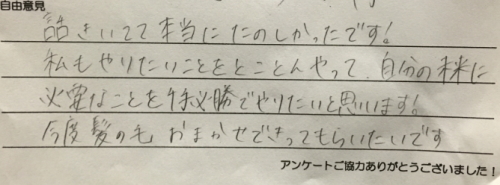 自由意見
話きいてて本当にたのしかったです!
私もやりたいことをとことんやって、自分の未来に
必要なことを必勝でやりたいと思いいます!
今度髪の毛おまかせできってもらいたいです
アンケートご協力ありがとうございました!